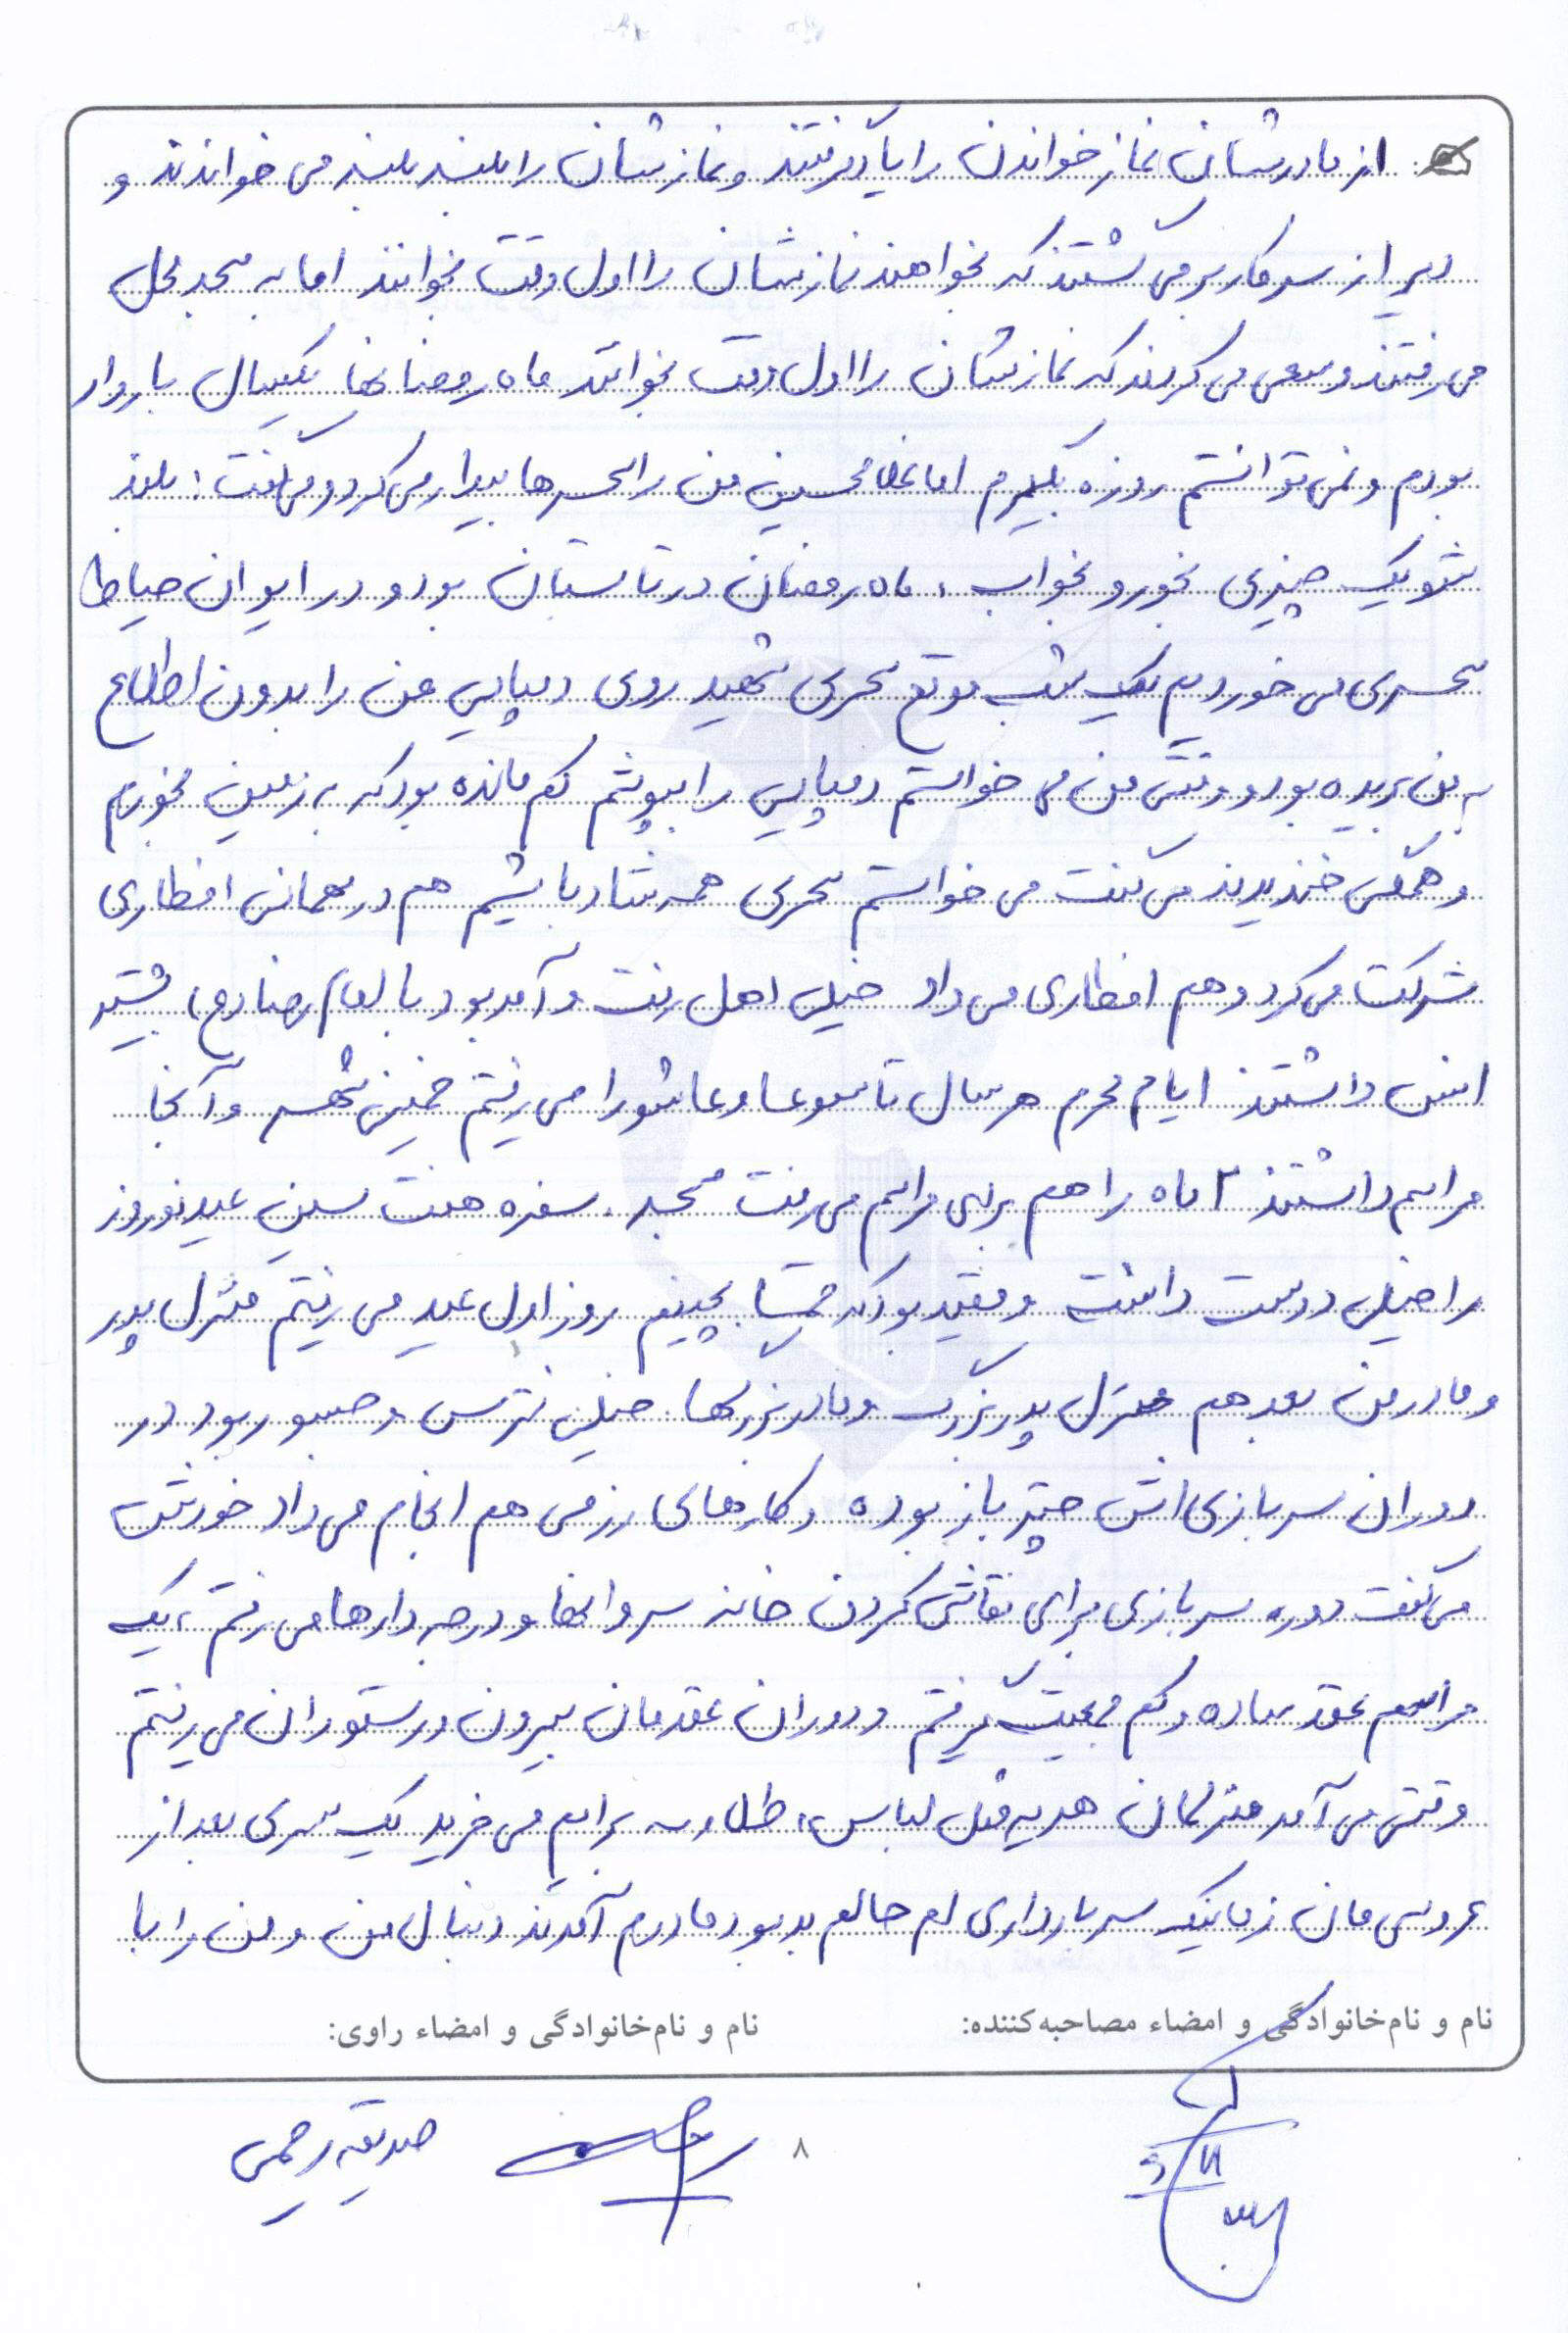 از مادرشان نماز خواندن را یاد گرفتند و نمازشان را بلند بلند می خواندند و
دیر از سرکار برمی گشتند که بخواهند نمازشان را اول وقت بخوانند اما به مسجد محل
می رفتند و سعی می کردند که نمازشان را اول وقت بخوانند ماه رمضانها یکسال باردار
بودم و نمی توانستم روزه بگیرم اما غلامحسین من را سحرها بیدار می کرد و می گفت: بلند
شو یک چیزی بخور و بخواب، ماه رمضان در تابستان بود و در ایوان حیاط
سحری می خوردیم یک شب موقع سحری شهید روی دمپایی من را بدون اطلاع
به من بریده بود و وقتی من می خواستم دمپایی را بپوشم کم مانده بود که به زمین بخورم
و همگی خندیدند می گفت می خواستم سحری همه شاد باشیم هم در مهمانی افطاری
شرکت می کرد و هم افطاری می داد خیلی اهل رفت و آمد بود با امام رضا (ع) بیشتر
انس داشتند ایام محرم هر سال تاسوعا و عاشورا می رفتیم خمینی شهر و آنجا
مراسم داشتند ۲ ماه را هم برای مراسم می رفت مسجد. سفره هفت سین عید نوروز
را خیلی دوست داشت و مقید بود که حتما بچینیم روز اول عید می رفتیم منزل پدر
و مادر من بعد هم منزل پدربزرگ و مادربزرگها خیلی نترس و صبور بود در
دوران سربازی اش چتر باز بوده و کارهای رزمی هم انجام می داد خودش
می گفت دوره سربازی برای نقاشی کردن خانه سروانها و درجه دارها می رفتم، یک
مراسم عقد ساده و کم جمعیت گرفتیم و دوران عقدمان بیرون و رستوران می رفتیم
وقتی می آمد منزلمان هدیه مثل لباس، طلا و ... برایم می خرید یک سری بعد از
عروسی مان زمانیکه سر بارداری ام حالم بد بود مادرم آمدند دنبال من و من را با
نام و نام‌خانوادگی و امضاء مصاحبه‌کننده:
نام و نام‌خانوادگی و امضاء راوی:
۸
صدیقه رحیمی